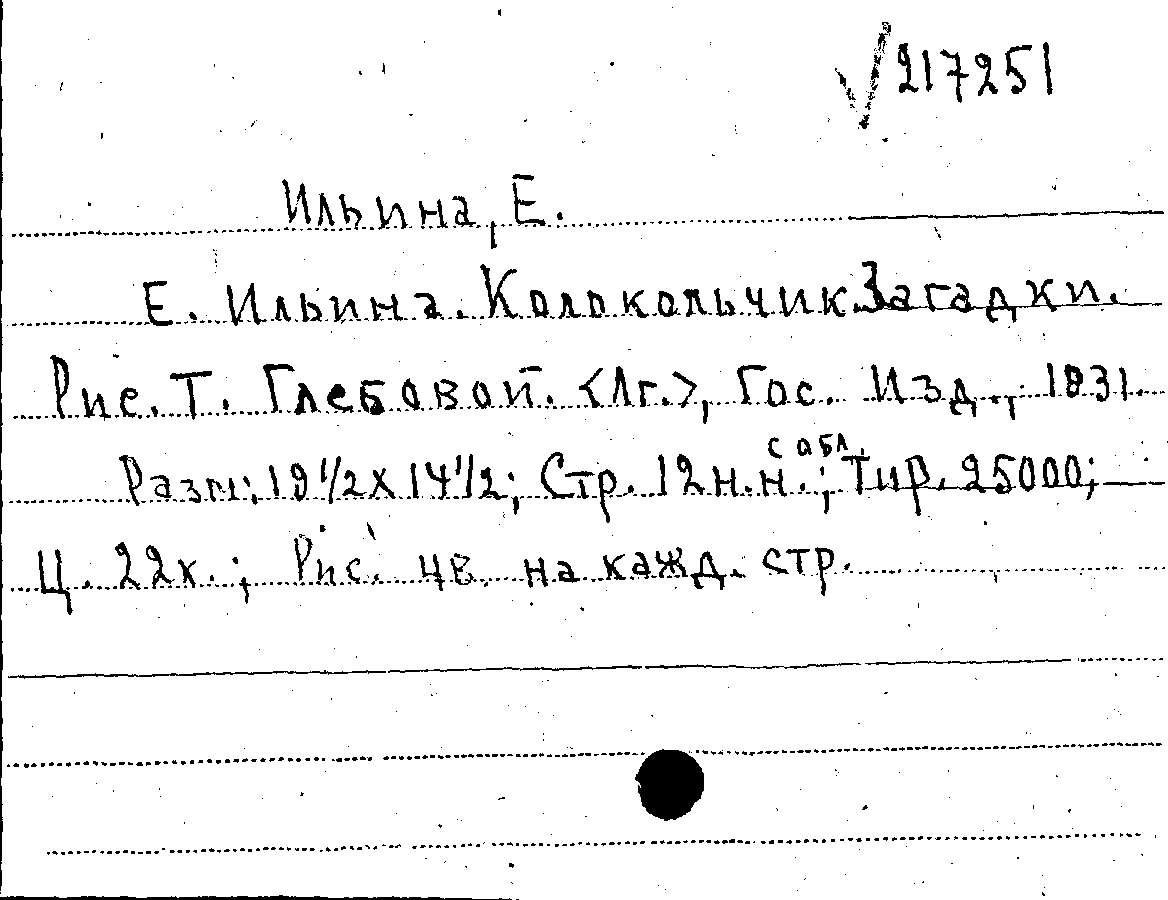 √217251
Ильина, Е.
Е. Ильина. Колокольчик. Загадки.
Рис. Т. Глебовой. <Лг.>, Гос. Изд., 1931.
Разм: 19 1/2 х 14 1/2; Стр. 12 н.н. с обл.; Тир. 25000;
Ц. 22к.; Рис. цв. на кажд. стр.